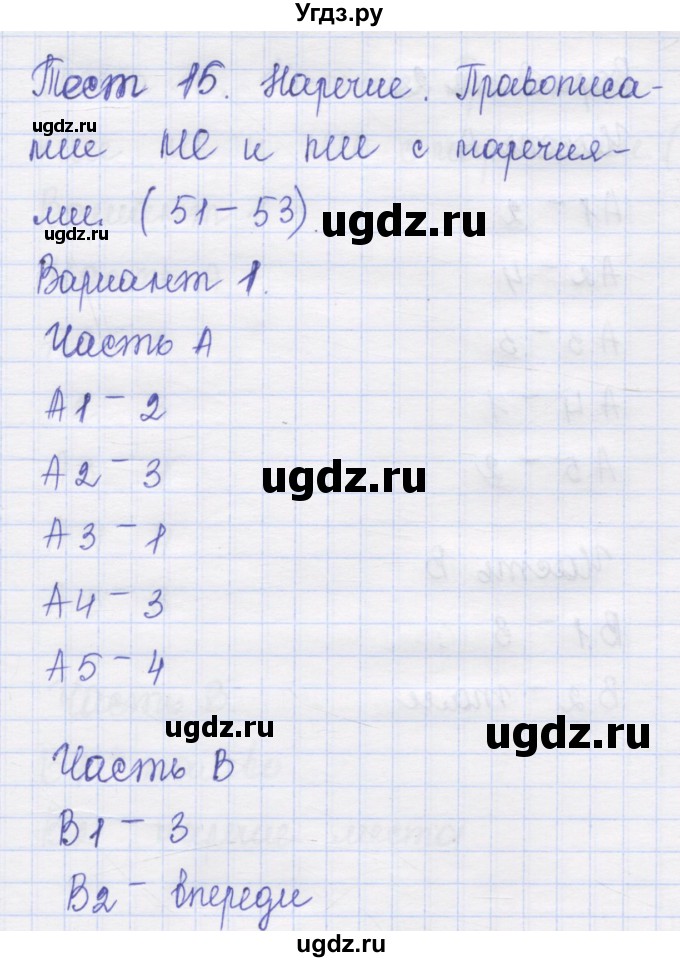 Угдз.ру
Тест 15. Наречие. Правописа-
ugdz.ru
ние не и ни с наречия-
ми. (51-53).
ugdz.ru
ugdz.ru
Вариант 1.
Часть А
А1 - 2
А2 - 3
ugdz.ru
А3 - 1
А4 - 3
А5 - 4
ugdz.ru
ugdz.ru
Часть В
В1 - 3
В2 - впереди
ugdz.ru